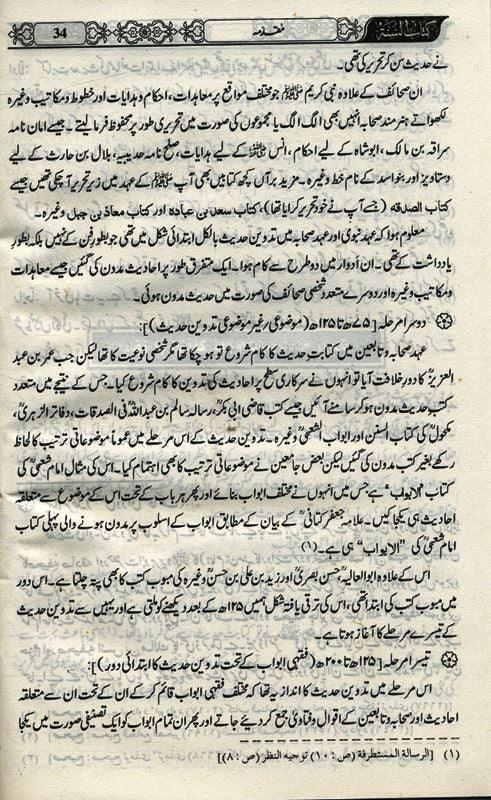 کتاب السنۃ
مقدمہ
34
نے حدیث سن کر تحریر کی تھی۔
ان صحائف کے علاوہ نبی کریم ﷺ جو مختلف مواقع پر معاہدات، احکام و ہدایات اور خطوط و مکاتیب وغیرہ
لکھواتے ہنر مند صحابہ انہیں بھی الگ الگ یا مجموعوں کی صورت میں تحریری طور پر محفوظ فرما لیتے۔ جیسے امان نامہ
سراقہ بن مالک، ابوشاہ کے لیے احکام، انس ﷺ کے لیے ہدایات، صلح نامہ حدیبیہ، بلال بن حارث کے لیے
دستاویز اور بنو اسد کے نام خط وغیرہ۔ مزید برآں کچھ کتابیں بھی آپ ﷺ کے عہد میں زیر تحریر آ چکی تھیں جیسے
کتاب الصدقہ (جسے آپ نے خود تحریر کرایا تھا)، کتاب سعد بن عبادہ اور کتاب معاذ بن جبل وغیرہ۔
معلوم ہوا کہ عہد نبوی اور عہد صحابہ میں تدوین حدیث بالکل ابتدائی شکل میں تھی جو بطور فن کے نہیں بلکہ بطور
یادداشت کے تھی۔ ان اَدوار میں دو طرح سے کام ہوا۔ ایک متفرق طور پر احادیث مدون کی گئیں جیسے معاہدات
و مکاتیب وغیرہ اور دوسرے متعدد شخصی صحائف کی صورت میں حدیث مدون ہوئی۔
دوسرا مرحلہ [۷۵ھ تا ۱۲۵ھ (موضوعی غیر موضوعی تدوین حدیث)]:
عہد صحابہ و تابعین میں کتابت حدیث کا کام شروع تو ہو چکا تھا مگر شخصی نوعیت کا تھا لیکن جب عمر بن عبد
العزیزؒ کا دور خلافت آیا تو انہوں نے سرکاری سطح پر احادیث کی تدوین کا کام شروع کیا۔ جس کے نتیجے میں متعدد
کتب حدیث مدون ہو کر سامنے آئیں جیسے کتب قاضی ابی بکرؒ، رسالہ سالم بن عبد اللہؒ فی الصدقات، دفاتر الزہریؒ،
مکحولؒ کی کتاب السنن اور ابواب الشعبیؒ وغیرہ۔ تدوین حدیث کے اس مرحلے میں عموماً موضوعاتی ترتیب کا لحاظ
رکھے بغیر کتب مدون کی گئیں لیکن بعض جامعین نے موضوعاتی ترتیب کا بھی اہتمام کیا۔ اس کی مثال امام شعبیؒ کی
کتاب "الابواب" ہے جس میں انہوں نے مختلف ابواب بنائے اور پھر ہر باب کے تحت اس کے موضوع سے متعلقہ
احادیث ہی یکجا کیں۔ علامہ جعفر کتانیؒ کے بیان کے مطابق ابواب کے اسلوب پر مدون ہونے والی پہلی کتاب
امام شعبیؒ کی "الابواب" ہی ہے۔(۱)
اس کے علاوہ ابو العالیہؒ، حسن بصریؒ اور زید بن علی بن حسنؒ وغیرہ کی مبوب کتب کا بھی پتہ چلتا ہے۔ اس دور
میں مبوب کتب کی ابتدا تھی، اس کی ترقی یافتہ شکل ہمیں ۱۲۵ھ کے بعد دیکھنے کو ملتی ہے اور یہیں سے تدوین حدیث
کے تیسرے مرحلے کا آغاز ہوتا ہے۔
تیسرا مرحلہ [۱۲۵ھ تا ۲۰۰ھ (فقہی ابواب کے تحت تدوین حدیث کا ابتدائی دور)]:
اس مرحلے میں تدوین حدیث کا انداز یہ تھا کہ مختلف فقہی ابواب قائم کر کے ان کے تحت ان سے متعلقہ
احادیث اور صحابہ و تابعین کے اقوال و فتاویٰ جمع کر دئیے جاتے اور پھر ان تمام ابواب کو ایک تصنیفی صورت میں یکجا
(۱) [الرسالة المستطرفة (ص: ۱۰) توجيه النظر (ص: ۸)]